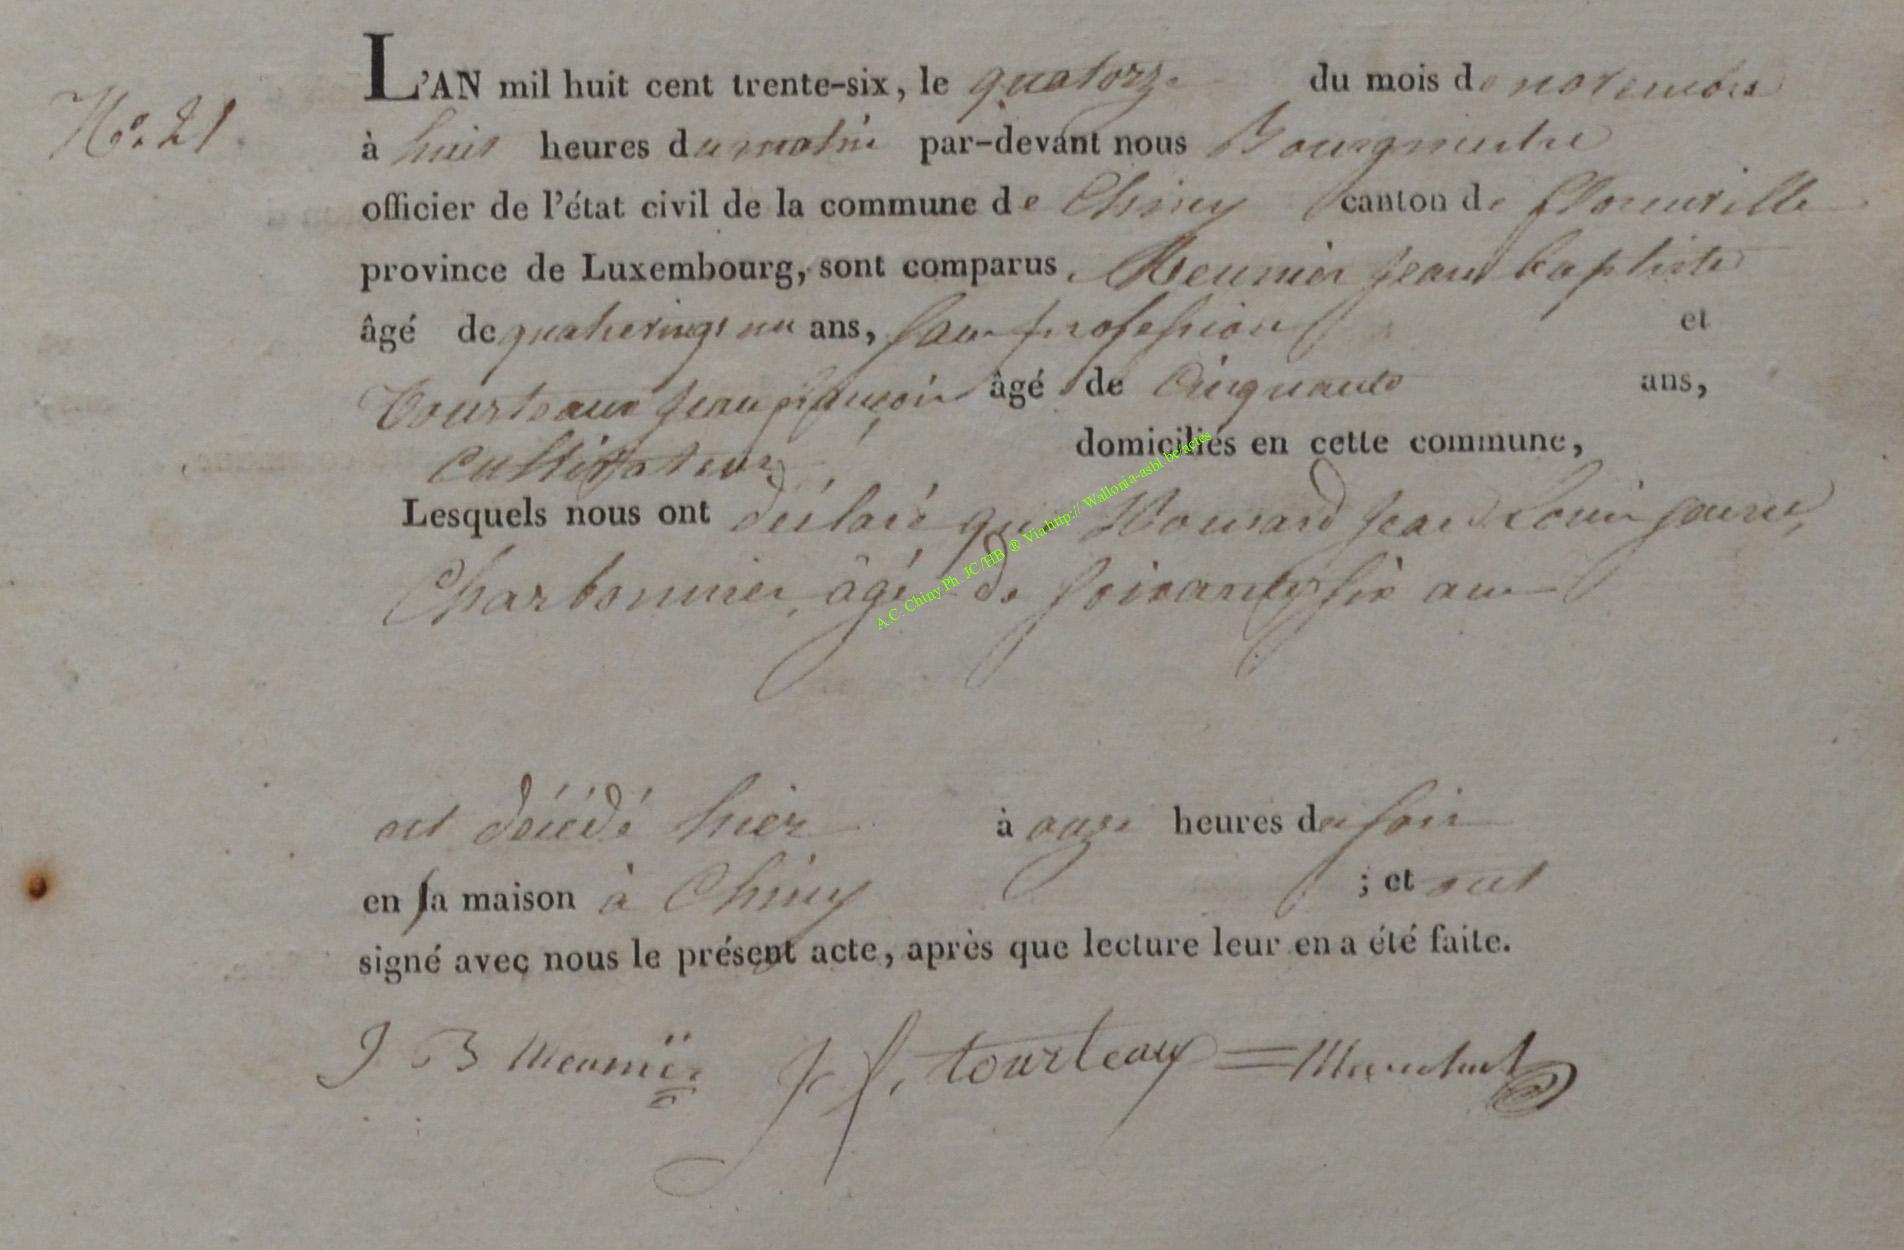 No. 21
L'AN mil huit cent trente-six, le quatorze du mois de novembre
à huit heures du matin par-devant nous Bourgmestre
officier de l'état civil de la commune de Chiny canton de florenville
province de Luxembourg, sont comparus Meunier jean baptiste
âgé de quatrevingt un ans, sans profession et
Tourteaux jean françois âgé de Cinquante ans,
Cultivateur domiciliés en cette commune,
Lesquels nous ont déclaré que jean Louis
Charbonnier, âgé de soixante six ans
est décédé hier à onze heures du soir
en sa maison à Chiny ; et ont
signé avec nous le présent acte, après que lecture leur en a été faite.
J B Meunier J f. tourteaux
A.C. Chiny Ph. JC/HB ® Via http:// Wallonia-asbl.be/actes